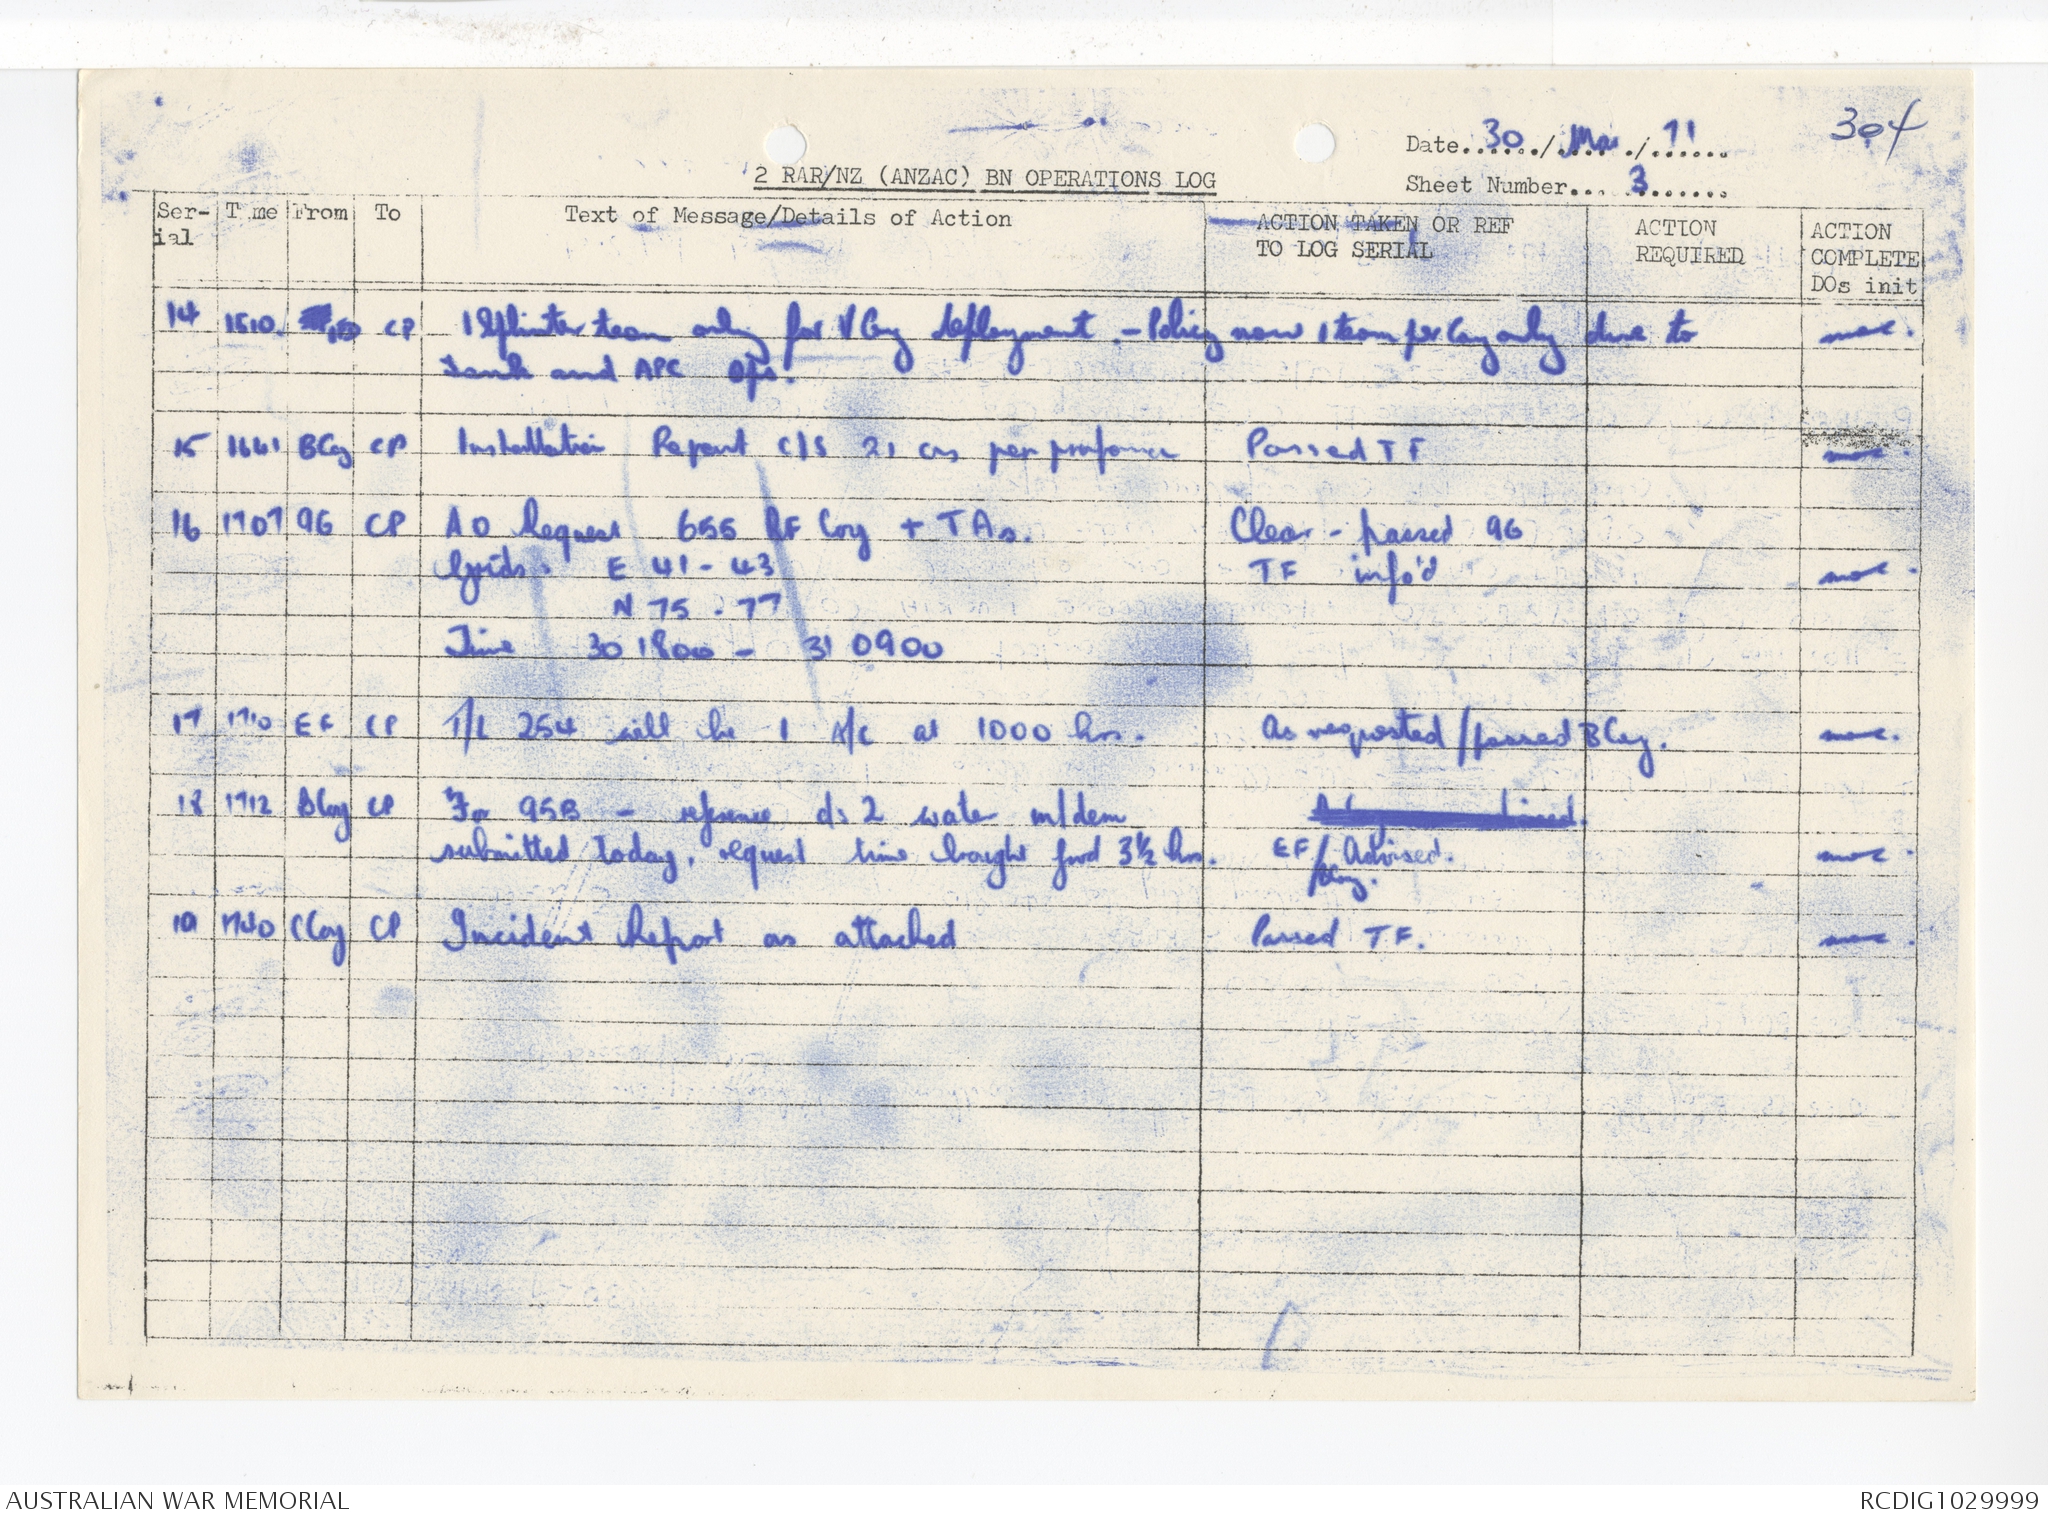 304
Date 30 / Mar / 71
2 RAR/NZ (ANZAC) BN OPERATIONS LOG
Sheet Number 3
Ser-ial Time From To Text of Message/Details of Action ACTION TAKEN OR REF TO LOG SERIAL ACTION REQUIRED ACTION COMPLETE DOs init
14 1510 CP 1 Splinter team only for V Coy deployment. - Policy now 1 team per Coy only due to
tank and APC Ops.
15 1641 BCoy CP Installation Report C/S 21 as per proforma Passed TF
16 1707 96 CP AO Request 655 RF Coy + TAs. Clear - passed 96
Grids: E 41 - 43 TF info'd
N 75 - 77
Time 30 1800 - 31 0900
17 1710 EF CP T/L 254 will be 1 A/C at 1000 hrs. As requested/passed BCoy.
18 1712 BCoy CP "For 95B - reference ds 2 water m/dem
submitted today, request time bought fwd 3½ hrs. EF/ Advised.
BCoy.
19 1740 CCoy CP Incident Report as attached Passed TF.
AUSTRALIAN WAR MEMORIAL
RCDIG1029999